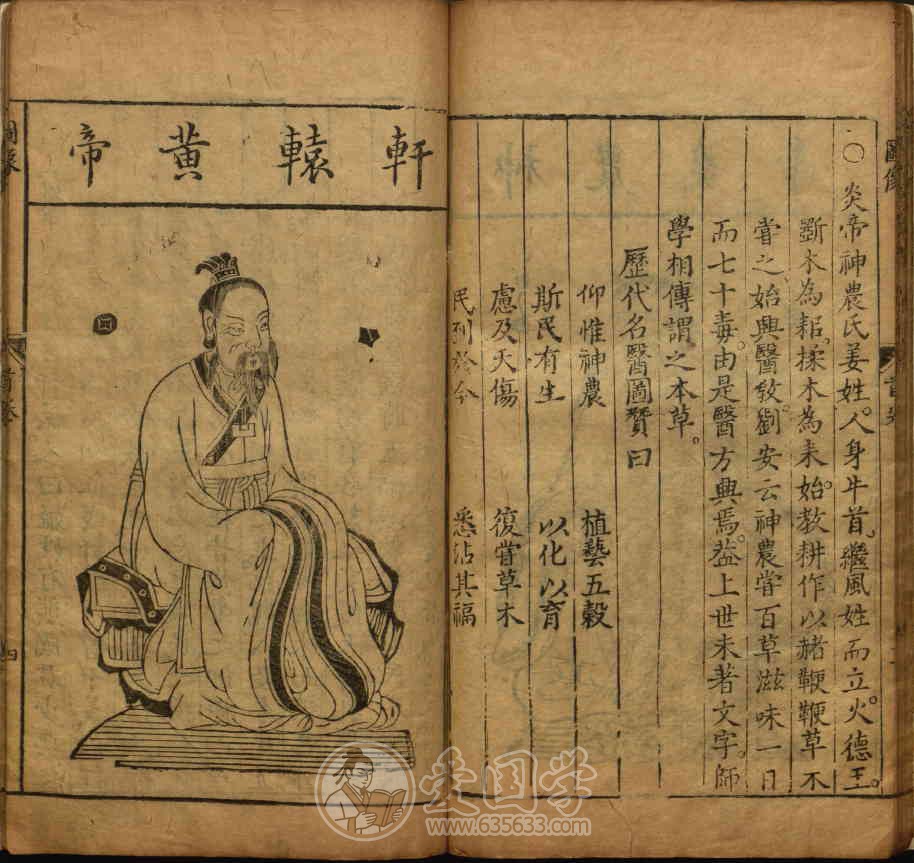 ○炎帝神農氏姜姓。人身牛首。繼風姓而立。火德王。
斲木為耜。揉木為耒。始教耕作以赭鞭鞭草木
嘗之、始興醫教。劉安云神農嘗百草滋味一日
而七十毒。由是醫方興焉。葢上世未著文字。師
學相傳謂之本草。
歷代名醫圖贊曰
仰惟神農 植藝五榖
斯民有生 以化以育
慮及夭傷 復嘗草木
民到於今 悉沾其福
軒轅黃帝
圖像
首卷
四
愛国学
www.635633.com